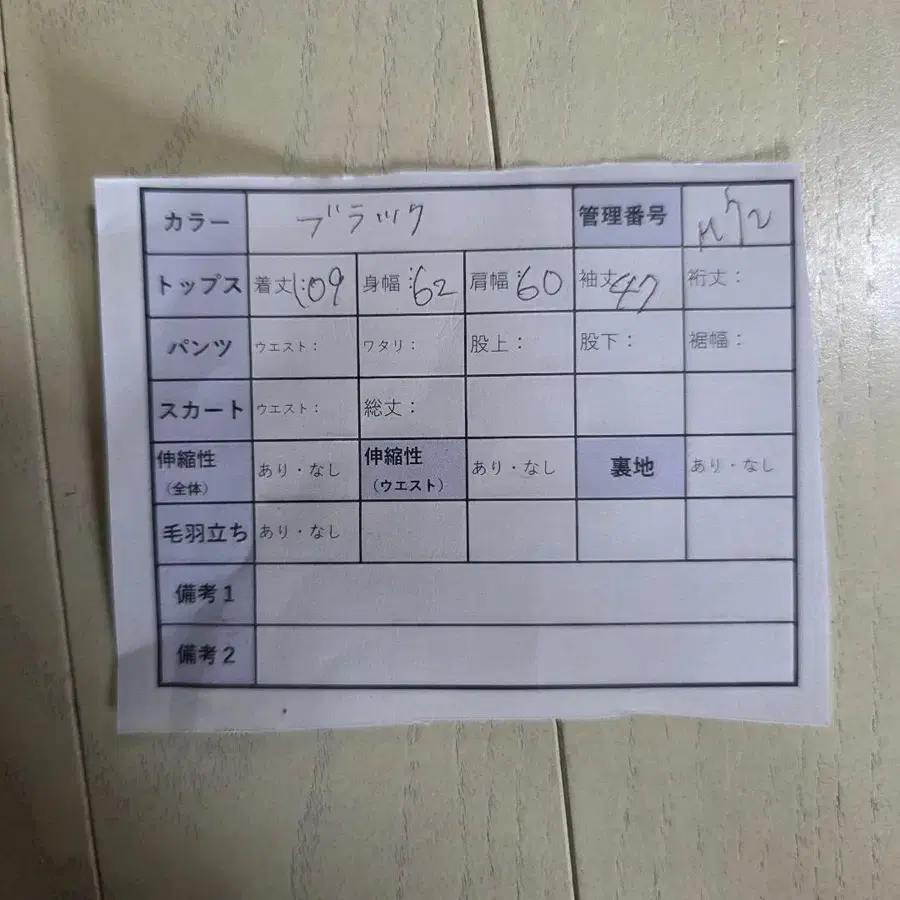 カラー ブラック 管理番号
トップス 着丈:109 身幅:62 肩幅:60 袖丈47 裄丈:
パンツ ウエスト: ワタリ: 股上: 股下: 裾幅:
スカート ウエスト: 総丈:
伸縮性 (全体) あり・なし 伸縮性 (ウエスト) あり・なし 裏地 あり・なし
毛羽立ち あり・なし
備考1
備考2